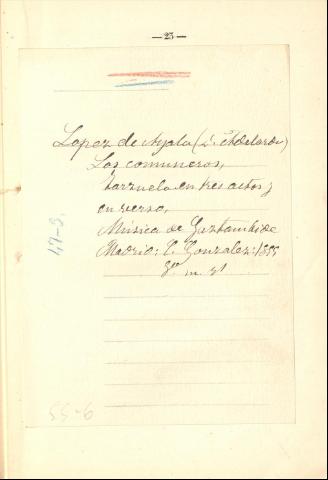 — 23 —
Lopez de Ayala (D. Adelardo)
Los comuneros,
zarzuela en tres actos y
en verso,
Música de Gaztambide
Madrid: C. Gonzalez: 1855
8º m. 
47-8,
55-6